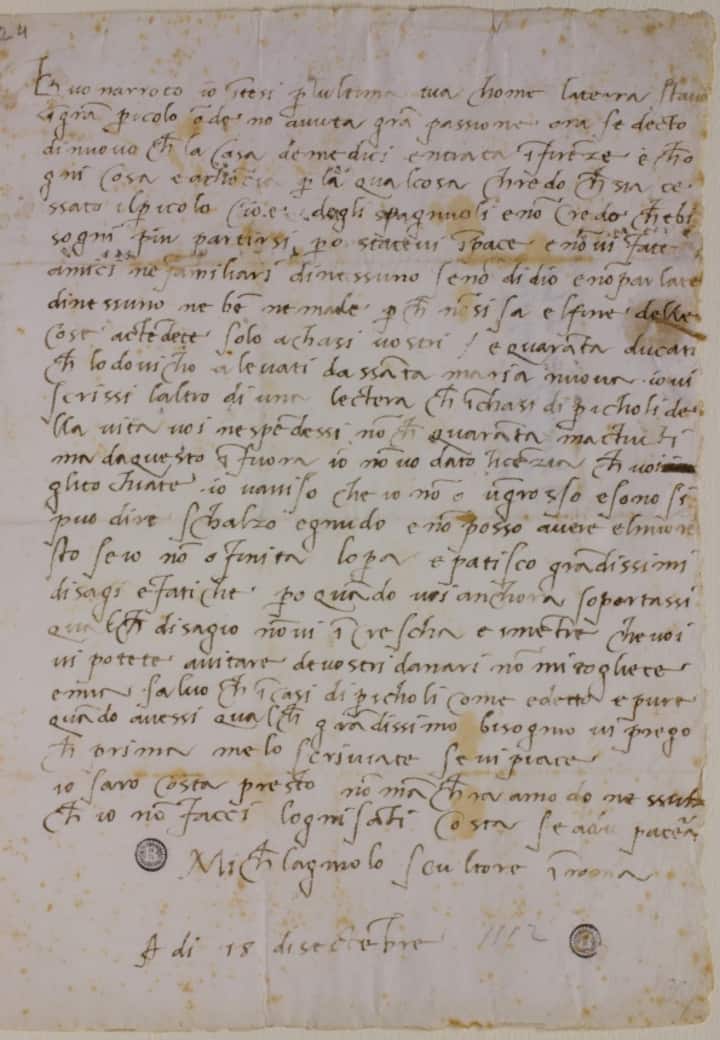 24
Buonarroto io ītesi p̄ lultima tua chome laterra stava
ī grā p̄icolo ōde no auuta grā passione ora se decto
di nuovo ch̄ la casa de medici entrata ī firenze e ch̄ o
gni cosa e achōcia p̄ la qualcosa chredo ch̄ sia ce
ssato il p̄icolo cioe degli spagnuoli e nō credo ch̄ ebi
sogni piu partirsi p̄o statevi ī pace e nō vi fate
amici ne familiari di nessuno se nō di dio e nō parlate
di nessuno ne bē ne male p̄ ch̄ nō si sa el fine delle
cose actēdete solo a chasi vostri / e quarāta ducati
ch̄ lodovicho a levati da ssāta maria nuova io vi
scrissi laltro di una lectera ch̄ ī chasi di p̄icholi de
lla vita voi ne spēdessi nō ch̄ quarāta ma tucti
ma da questo ī fuora io nō vo dato licēzia ch̄ voi
gli tochiate io vaviso che io nō o ū grosso e sono si
puo dire schalzo e gnudo e nō posso avere el mio re
sto se io nō o finita lopa e patisco grādissimi
disagi e fatiche p̄o quādo voi anchora soportassi
qualch̄ disagio nō vi ī crescha e īmētre che voi
vi potete aiutare de vostri danari nō mi togliete
e miei salvo ch̄ ī casi di p̄icholi come e decto e pure
quādo avessi qualch̄ grādissimo bisognio vi priego
ch̄ prima me lo scriviate se vi piace
io saro costa presto nō māch̄ra a modo nessuno
ch̄ io nō facci lognisāti costa se a dio piacera
Mich̄lagniolo scultore ī roma
A di 18 di sectēbre 1512